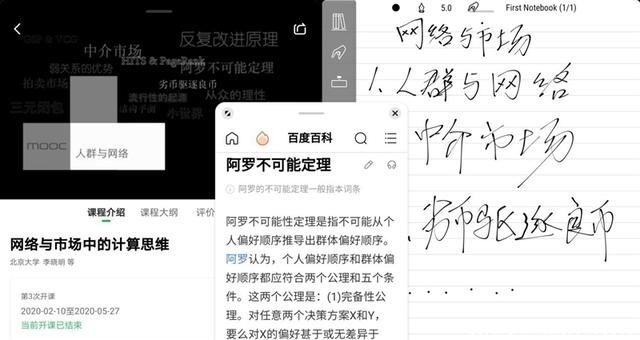 GSP & VCG
中介市场
反复改进原理
弱关系的优势
HITS & PageRank
阿罗不可能定理
拍卖市场
劣币驱逐良币
从众的理性
三元闭包
流行性的起源
小世界
mooc
人群与网络
课程介绍 课程大纲 评价
网络与市场中的计算思维
北京大学 李晓明 等
第3次开课
2020-02-10至2020-05-27
当前开课已结束
百度百科
阿罗不可能定理
阿罗的不可能定理一般指本词条
阿罗不可能性定理是指不可能从个
人偏好顺序推导出群体偏好顺序。
阿罗认为，个人偏好顺序和群体偏
好顺序都应符合两个公理和五个条
件。这两个公理是：(1)完备性公
理。对任意两个决策方案X和Y，
要么对X的偏好甚于或无差异于
5.0
First Notebook (1/1)
网络与市场
1.人群与网络
中介市场
劣币驱逐良币
......